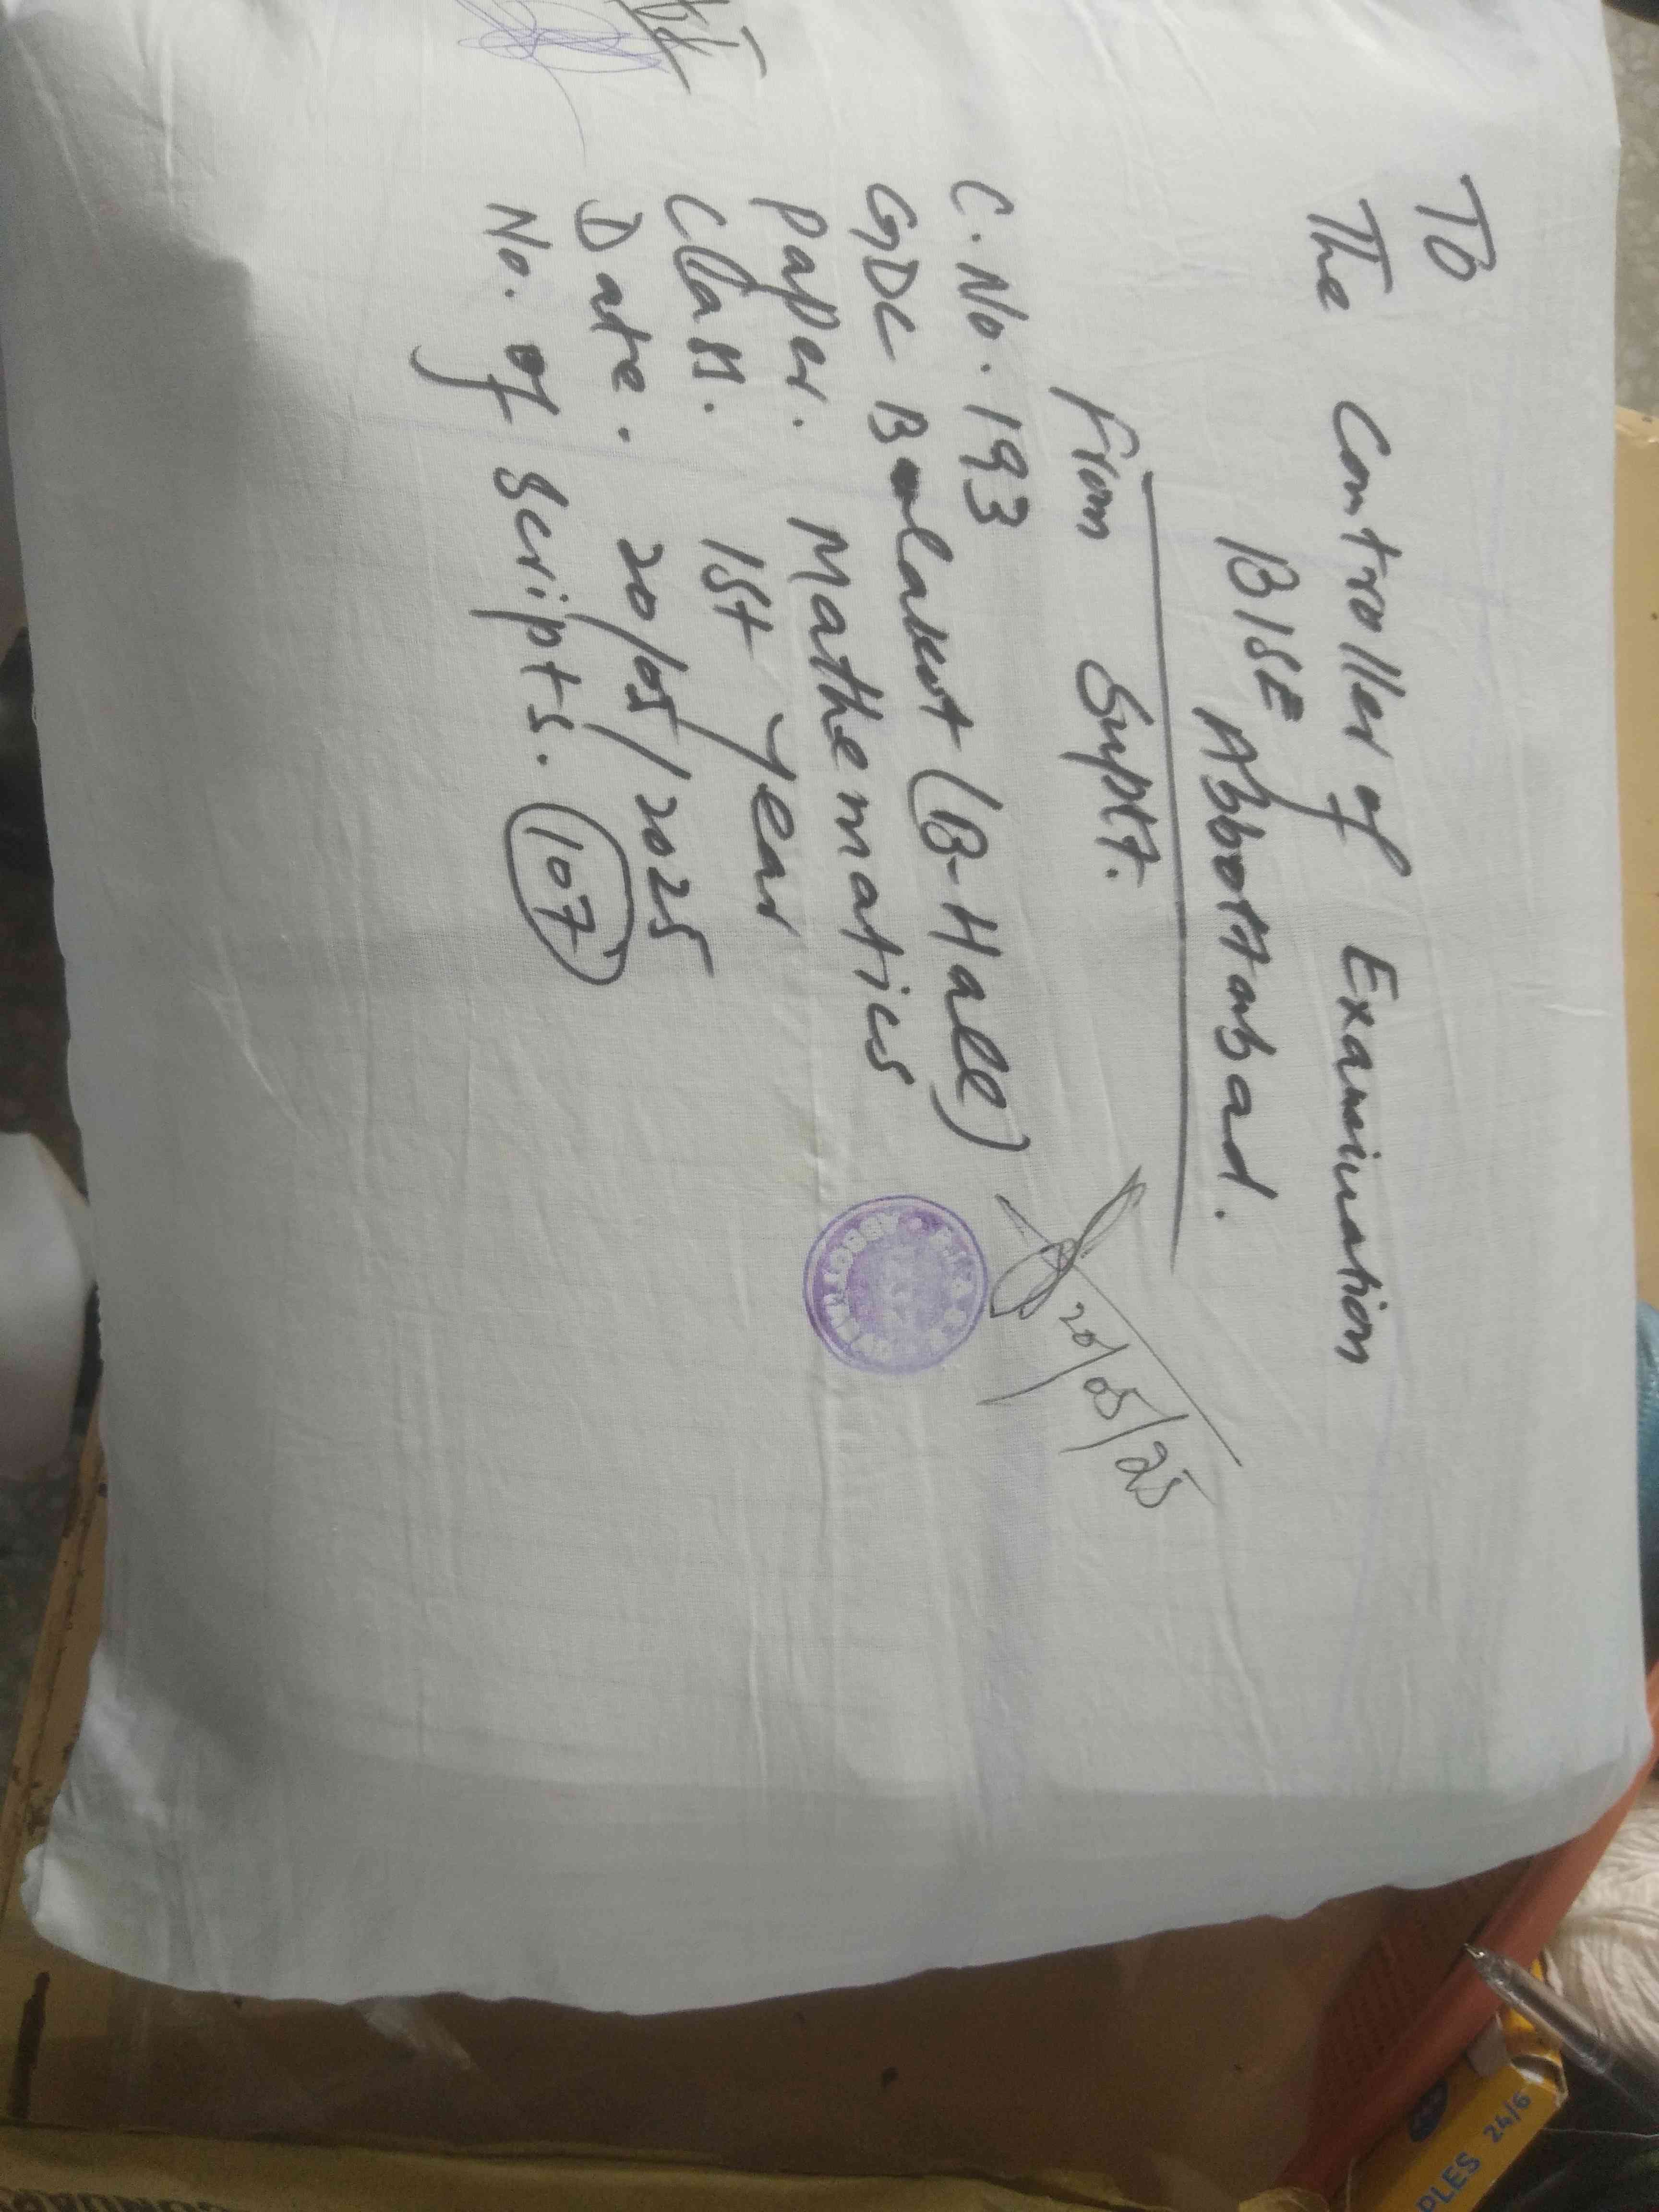 To
The Controller of Examination
BISE Abbottabad.
From Suptt.
C. No. 193
GDC Balakot (B-Hall)
Paper. Mathematics
Class. 1st year
Date. 20/05/2025
No. of scripts. 107
20/05/25
PLES 24/6